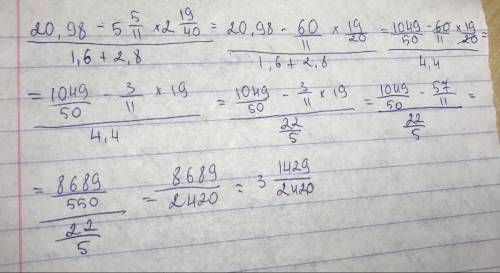 (20,98 - 5 5/11 × 2 19/40)/(1,6 + 2,8) = (20,98 - 60/11 × 19/20)/(1,6 + 2,8) = (1049/50 - 60/11 × 19/20)/4,4 =
= (1049/50 - 3/11 × 19)/4,4 = (1049/50 - 3/11 × 19)/(22/5) = (1049/50 - 57/11)/(22/5) =
= (8689/550)/(22/5) = 8689/2420 = 3 1429/2420